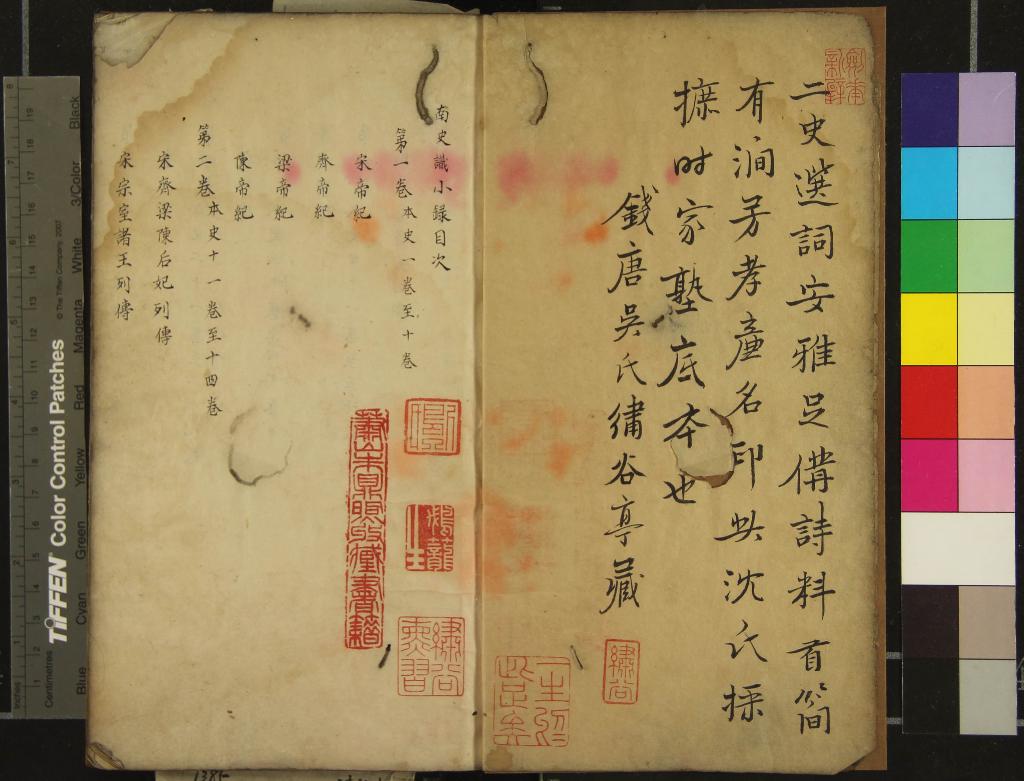 二史選詞安雅足備詩料首簡
有澗芳孝廉名印此沈氏採
摭时家塾底本也
錢唐吳氏繡谷亭藏
繡谷
南史識小録目次
第一卷本史一卷至十卷
宋帝紀
齊帝紀
梁帝紀
陳帝紀
第二卷本史十一卷至十四卷
宋齊梁陳后妃列傳
宋宗室諸王列傳
蕭山朱氏藏書籍
繡谷
TIFFEN Color Control Patches
© The Tiffen Company, 2007
Blue Cyan Green Yellow Red Magenta White 3/Color Black
Inches
Centimetres
1385